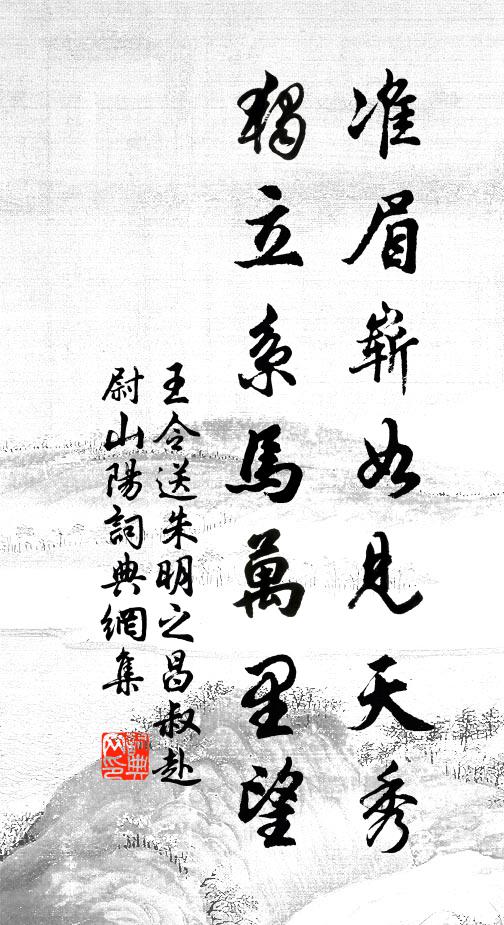 准眉嶄如見天秀
獨立系馬萬里望
王令送朱明之昌叔赴
尉山陽詞典網集